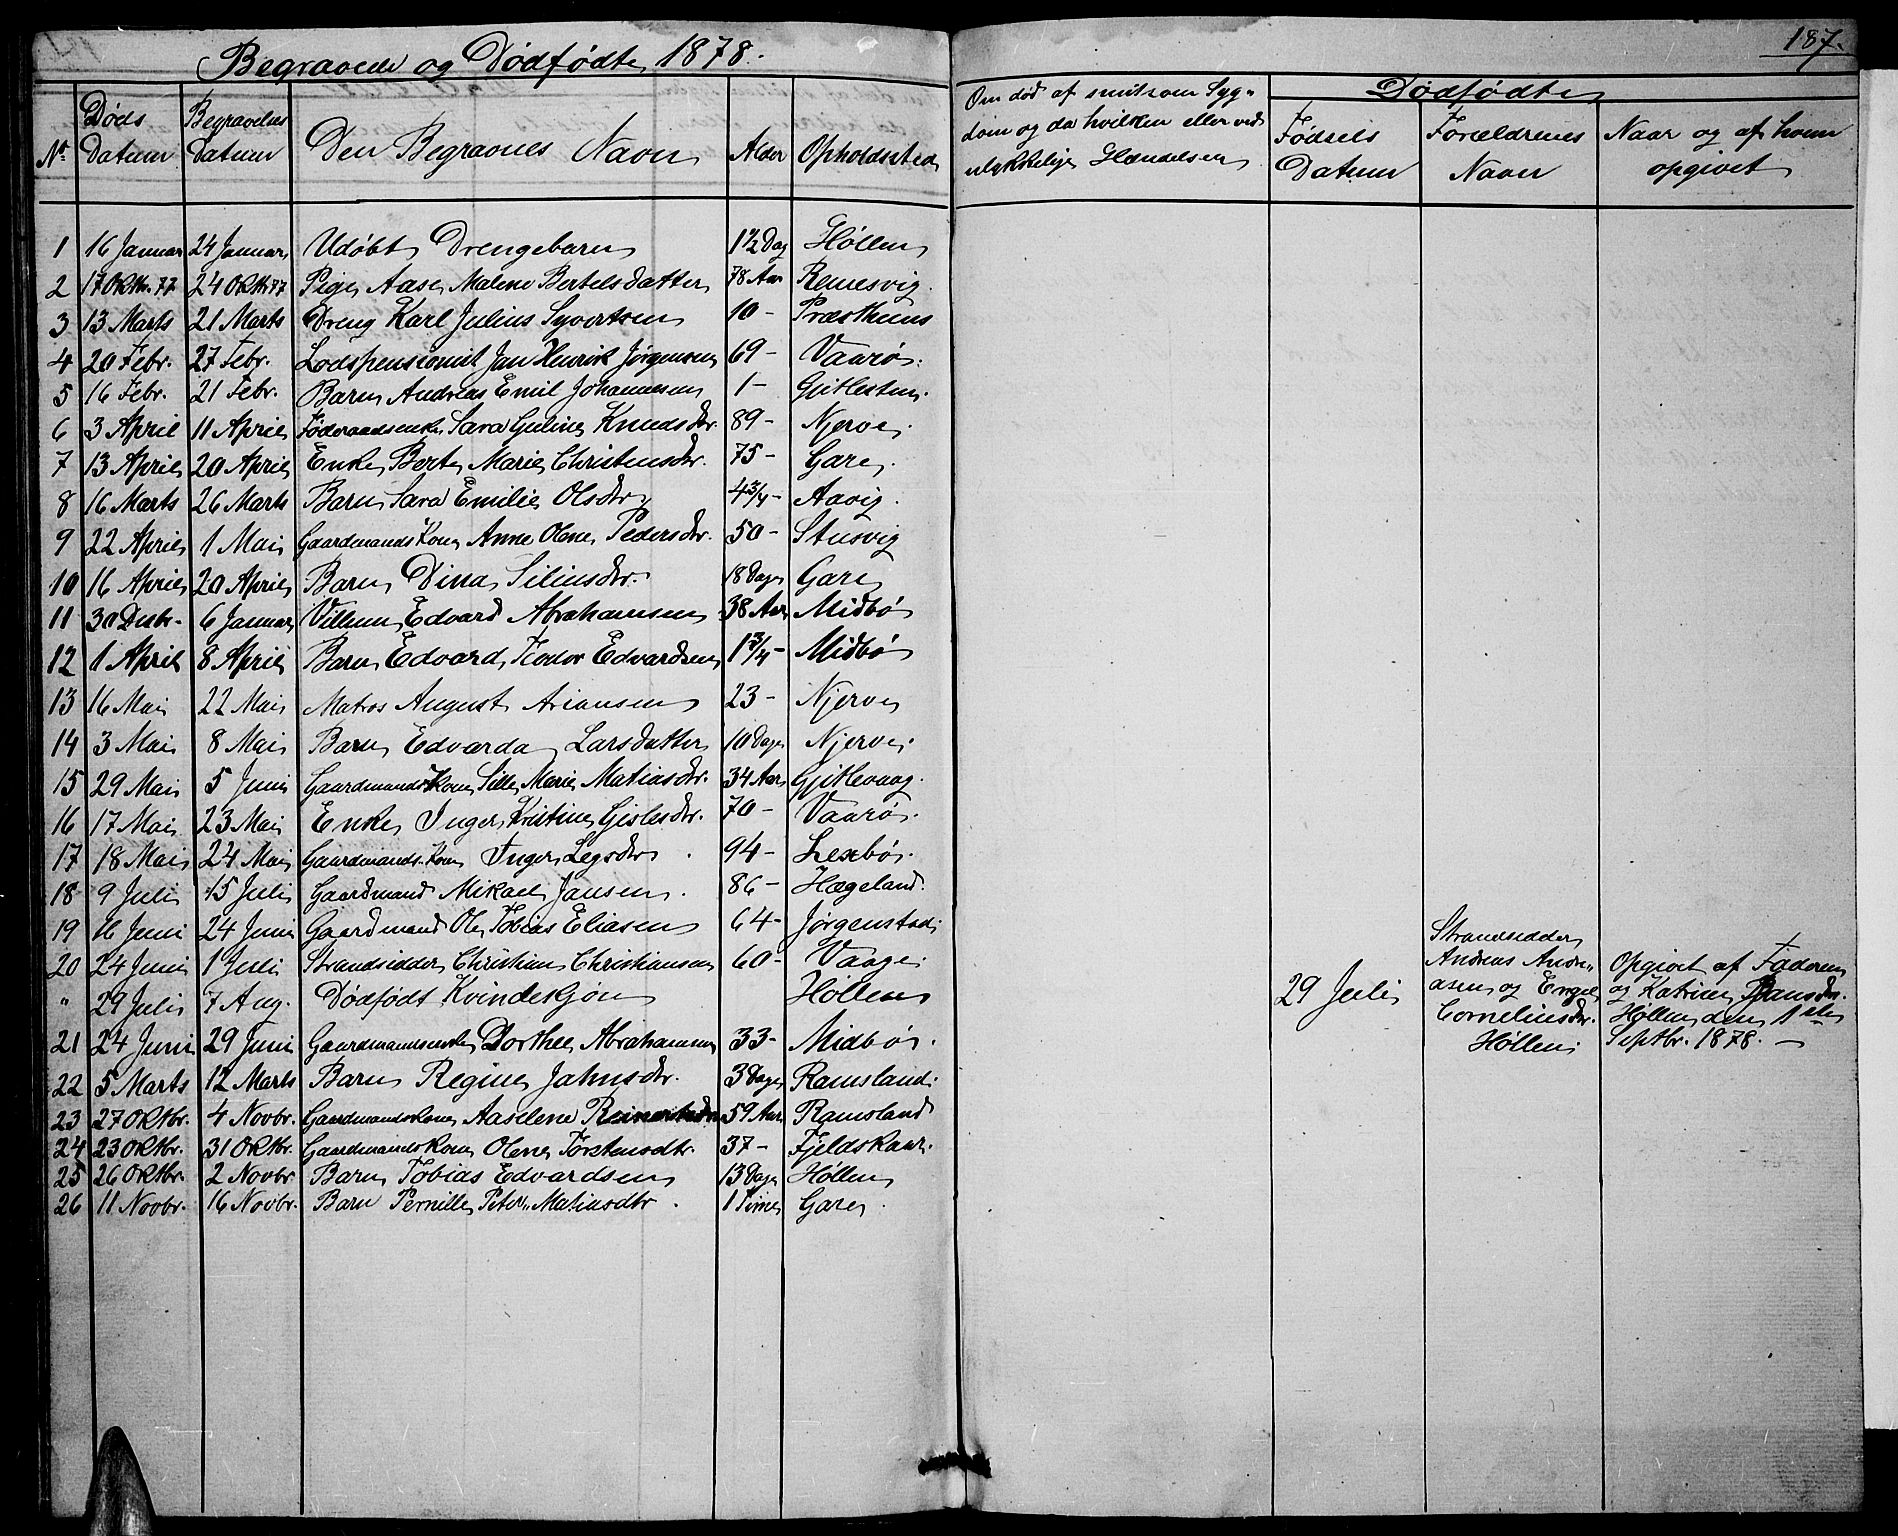 Begravede og Dødfødte 1878.
187.
Nr. Døds Datum Begravelses Datum Den Begravnes Navn Alder Opholdssted
Om død af smitsom Syg-
dom og da hvilken eller ved
ulykkelige Hændelser
Dødfødte
Fødsels Datum Forældrenes Navn Naar og af hvem opgivet
1 16 Januar 24 Januar Udøbt Drengebarn 1 1/2 Dag Høllen
2 17 Oktbr. 77 24 Oktbr 77 Pige Aase Malene Bertelsdatter 78 Aar Remesvig.
3 13 Marts 21 Marts Dreng Karl Julius Syvertsen 10 - Præsthuus
4 20 Febr. 27 Febr. Lodspensionist Jan Henrik Jørgensen 69 - Vaarø.
5 16 Febr. 21 Febr. Barn Andreas Emil Johannesen 1 - Gjitlesteen.
6 3 April 11 April Føderaadsenke Sara Guline Knudsdtr. 89 - Njerve.
7 13 April 20 April Enke Berte Marie Christensdtr. 75 - Gare.
8 16 Marts 26 Marts Barn Sara Emilie Olsdtr. 4 3/4 - Aavig.
9 22 April 1 Mai Gaardmands Kone Anne Olene Pedersdtr. 50 - Stusvig
10 16 April 20 April Barn Dina Siliusdtr. 18 Dage Gare
11 30 Decbr. 6 Januar Villum Edvard Abrahamsen 38 Aar Midbø
12 1 April 8 April Barn Edvard Teodor Edvardsen 1 3/4 - Midbø
13 16 Mai 22 Mai Matros August Ariansen 23 - Njerve
14 3 Mai 8 Mai Barn Edvarda Larsdatter 10 Dage Njerve.
15 29 Mai 5 Juni Gaardmands Kone Sille Marie Matiasdtr. 34 Aar Gjitlevaag.
16 17 Mai 23 Mai Enke Inger Kristine Gislesdtr. 70 - Vaarø.
17 18 Mai 24 Mai Gaardmands-Kone Inger Legsdtr. 94 - Lexbø.
18 9 Juli 15 Juli Gaardmand Mikael Jansen. 86 - Hægeland.
19 16 Juni 24 Juni Gaardmand Ole Tobias Eliasen 64 - Jørgenstad.
20 24 Juni 1 Juli Strandsidder Christian Christiansen 60 - Vaage.
" 29 Juli 7 Aug. Dødfødt Kvindekjøn Høllen
29 Juli
Strandsidder
Andreas Andre-
asen og Engel
Corneliusdtr.
Høllen.
Opgivet af Faderen
og Katrine Hansdtr.
Høllen den 1ste
Septbr. 1878. -
21 24 Juni 29 Juni Dorthee Abrahamsen 33 - Midbø.
22 5 Marts 12 Marts Barn Regine Jahnsdtr. 3 Dage Ramsland.
23 27 Oktbr. 4 Novbr. Gaardmandskone Aaslene 59 Aar Ramsland
24 23 Oktbr. 31 Oktbr. Gaardmandskone Olene Torstensdtr. 37 - Fjeldskaar.
25 26 Oktbr. 2 Novbr Barn Tobias Edvardsen 13 Dage Høllen
26 11 Novbr. 16 Novbr. Barn Pernille Petr. Matiasdtr. 1 Time Gare.